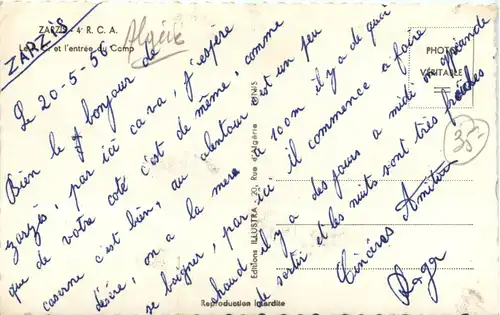 ZARZIS - 4e R. C. A.
Le et l'entrée du Camp
Algérie
PHOTO
VÉRITABLE
35-
Editions ILLUSTRA - 20, Rue d'Algérie - TUNIS
Reproduction interdite
ZARZIS
Le 20-5-56
Bien le bonjour de
zarzis, par ici ca va, j'espère
que de votre coté c'est de même, comme
caserne c'est bien, au alentour c'est un peu
désire, on a la mer a 100m il y a de quoi
se baigner, par ici il commence a faire
chaud, il y a des jours a midi on apréande
de sortir et les nuits sont très fraîches
Sincères Amitiés
Roger